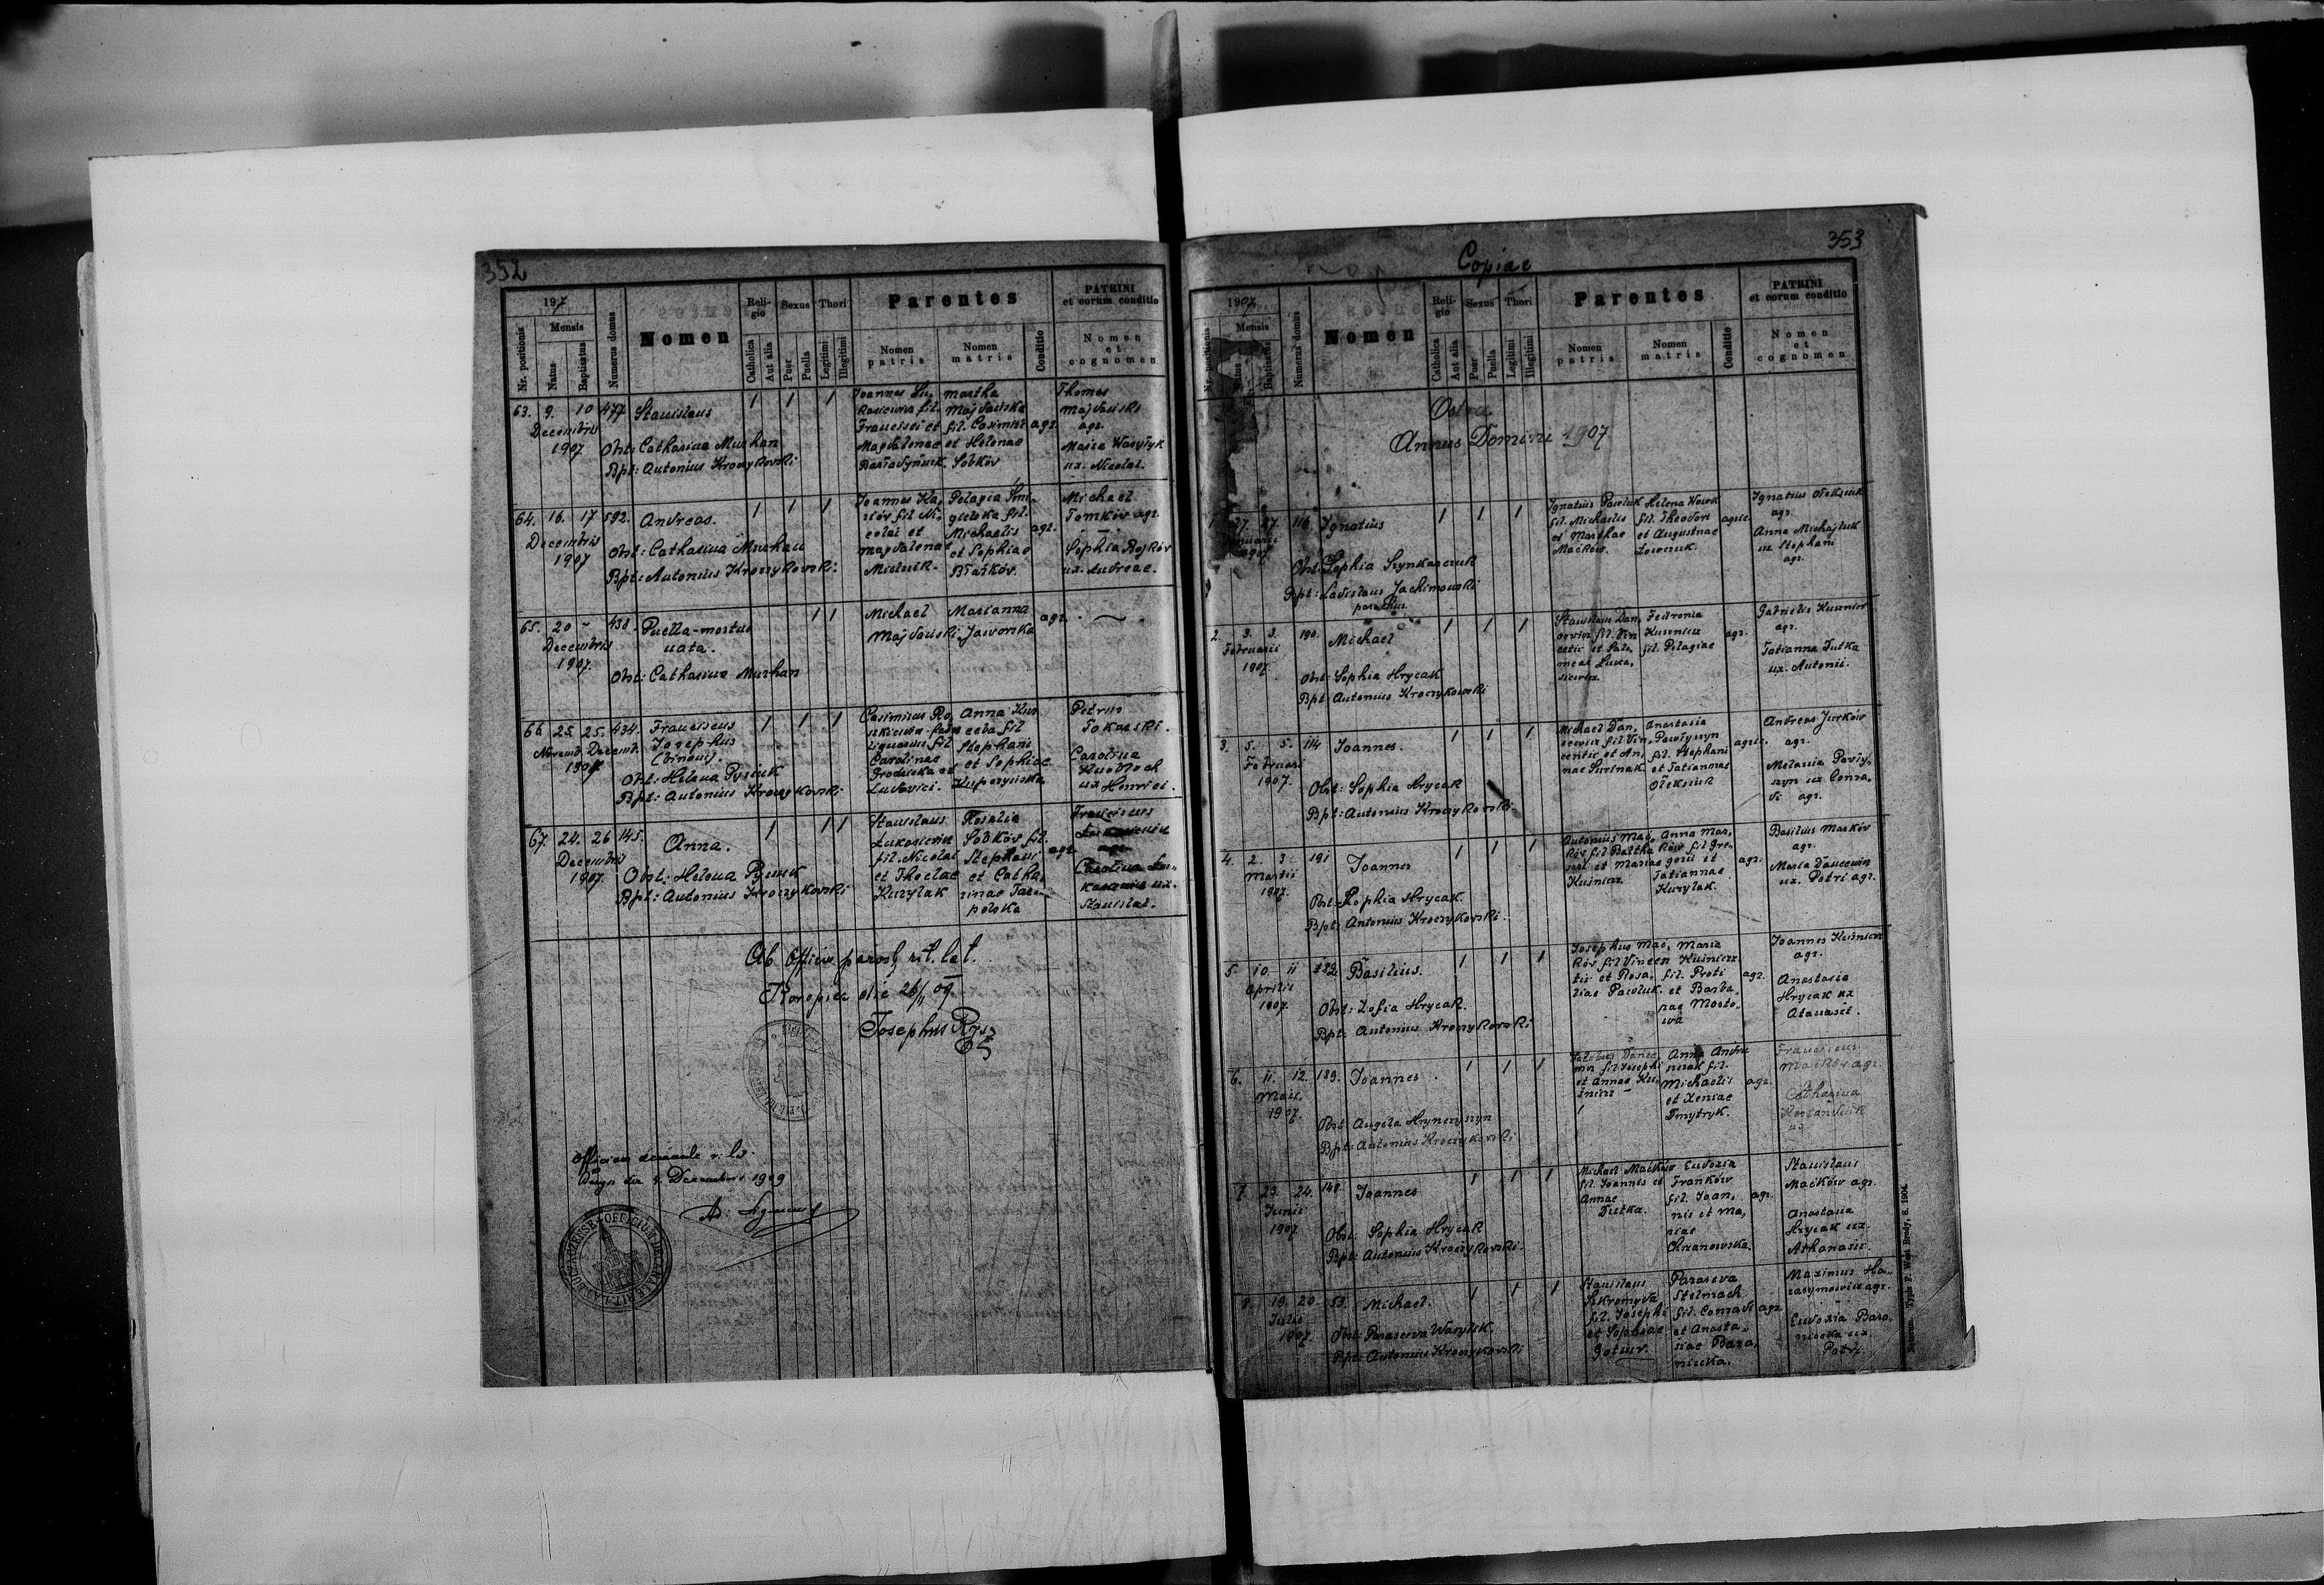 352
197
Nr. positionis
Mensis
Natus
Baptisatus
Numerus domus
Nomen
Reli-
gio
Catholica
Aut alia
Sexus
Puer
Puella
Thori
Legitimi
Illegitimi
Parentes
Nomen
patris
Nomen
matris
Conditio
PATRINI
et eorum conditio
Nomen
et
cognomen
63. 9. 10 477 Stanislaus
Decembris
1907
Obst: Catharina Murhan
Bpt: Antonius Kroczykowski
Joannes Lu,
kasiewicz fil.
Francisci et
Magdalenae
Martha
Majdańska
fil. Casimiri
et Helenae
Sobków
agr.
Thomas
Majdański
agr.
Maria Wasyłyk
ux. Nicolai.
64. 16. 17 592. Andreas.
Decembris
1907
Obst: Catharina Murhan
Bpt: Antonius Kroczykowski
Joannes
fil. Ni,
colai et
Magdalenae
Pelagia
fil.
Michaelis
et Sophiae
agr.
Michael
Tomków agr.
Sophia Bojków
ux. Andreae.
65. 20 - 438. Puella-mortua
nata.
Decembris
1907.
Obst: Catharina Murhan
Michael
Majdański
Marianna
Jaworska
agr.
66. 25. 25. 434. Franciscus
Josephus
(binom).
Novemb. Decemb.
Obst: Helena Pysiuk
Bpt: Antonius Kroczykowski
Casimirus
fil
Carolinae
Grodzicka et
Ludovici.
Anna
fil
Stephani
et Sophiae
Kupczyńska
Petrus
Tokarski.
Carolina
Knobloch
ux Henrici.
67. 24. 26 145. Anna.
Decembris
1907.
Obst: Helena Pysiuk
Bpt: Antonius Kroczykowski
Stanislaus
Łukasiewicz
fil. Nicolai
et Theclae
Kurylak
Rosalia
Sobków fil.
Stephani
et Catha,
rinae Tar-
polska
agr.
Franciscus
Łukasiewicz
agr.
Carolina Łu-
kasiewicz ux.
Stanislai.
Ab Officio paroch rit. lat.
Koropiec die 26/11 09
Josephus Rysz
Officium decanale r. l.
die 9. Decembris 1909
353
Copiae
1907
Nr. positionis
Mensis
Natus
Baptisatus
Numerus domus
Nomen
Reli-
gio
Catholica
Aut alia
Sexus
Puer
Puella
Thori
Legitimi
Illegitimi
Parentes
Nomen
patris
Nomen
matris
Conditio
PATRINI
et eorum conditio
Nomen
et
cognomen
Ostra
Annus Domini 1907
1. 27. 27. 116. Ignatius
1907
Obst: Sophia Szynkarczuk
Bpt: Ladislaus Jachimowski
parochus.
Ignatius Pawluk
fil. Michaelis
et Marthae
Maćków.
Helena Wowk
fil. Theodori
et Augustinae
agric.
Ignatius Ołeksiuk
agr.
Anna Michajluk
ux Stephani
agr.
2. 3. 3. 190. Michael
Februarii
1907.
Obst: Sophia Hrycak
Bpt: Antonius Kroczykowski
Stanislaus Dan,
cewicz fil. Vin
centii et Salo,
meae Łuka,
siewicz.
Fedronia
Kuśnierz
fil. Pelagiae
agr.
Gabrielis Kuśnierz
agr.
Tatianna Dutka
ux. Antonii.
3. 5. 5. 114 Joannes.
Februari
1907.
Obst: Sophia Hrycak
Bpt: Antonius Kroczykowski
Michael Dan,
cewicz fil Vin,
centii et An,
nae Smrinak
Anastasia
Pawłyszyn
fil. Stephani
et Tatiannae
Ołeksiuk
agric.
Andreas Jurków
agr.
Melania Pawły-
szyn ux Conra,
di agr.
4. 2. 3. 191 Joannes
Martii
1907.
Obst: Sophia Hrycak.
Bpt: Antonius Kroczykowski.
Antonius Mać,
ków fil Baltha
sari et Mariae
Kuśnierz
Anna Mar,
ków fil Gre,
gorii et
Tatiannae
Kurylak.
agr.
Basilius Marków
agr.
Maria Dancewicz
ux. Petri agr.
5. 10. 11 Basilius.
Aprilis
1907.
Obst: Zofia Hrycak.
Bpt: Antonius Kroczykowski
Josephus Mać,
ków fil Vincen
tii et Rosa,
liae Pawluk.
Maria
Kuśnierz
fil. Proti
et Barba,
rae Mosto,
wa
agr.
Joannes Kuśnierz
agr.
Anastasia
Hrycak ux
Atanasii.
6. 11. 12. 139. Joannes.
Maii.
1907.
Obst: Angela Hrynczyszyn
Bpt: Antonius Kroczykowski
Jacobus Dance,
wicz fil Josephi
et Annae Ku,
śnierz
Anna Andru
fil.
Michaelis
et Xeniae
Dmytryk.
agr.
Franciscus
Maćków agr.
Catharina
ux
7. 23. 24. 148. Joannes
Junii
1907
Obst: Sophia Hrycak
Bpt: Antonius Kroczykowski.
Michael Maćków
fil. Joannis et
Annae
Dutka.
Eudoxia
Franków
fil. Joan,
nis et Ma,
riae
Chrzanowska.
agr.
Stanislaus
Maćków agr.
Anastasia
Hrycak ux.
Athanasii.
8. 19. 20. 53. Michael.
Julii
1907.
Obst: Parasceva Wasylik.
Bpt: Antonius Kroczykowski
Stanislaus
Skromyda
fil. Josephi
et Sophiae
Parasceva
Stelmach
fil. Conradi
et Anasta,
siae Bara,
niecka.
agr.
Maximus Ha-
rasymowicz agr.
Eudoxia Bara,
niecka ux.
Petri.
Typis F. West. Brody, 8. 1904.